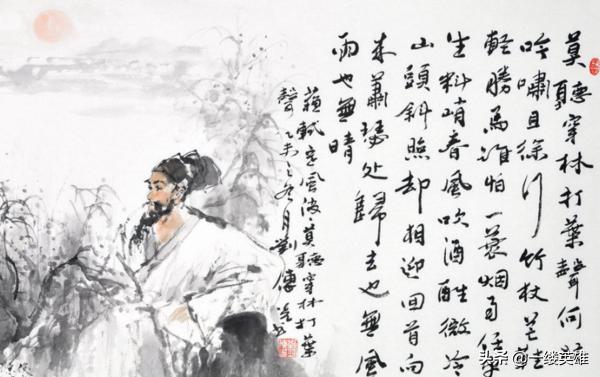 莫聽穿林打葉聲何妨
吟嘯且徐行竹杖芒鞋
輕勝馬誰怕一蓑烟雨任平
生料峭春風吹酒醒微冷
山頭斜照却相迎回首向
來蕭瑟处歸去也無風
雨也無晴
蘇軾定風波莫聽穿林打葉
聲乙未之冬月劉傳
头条 @一缕英雄